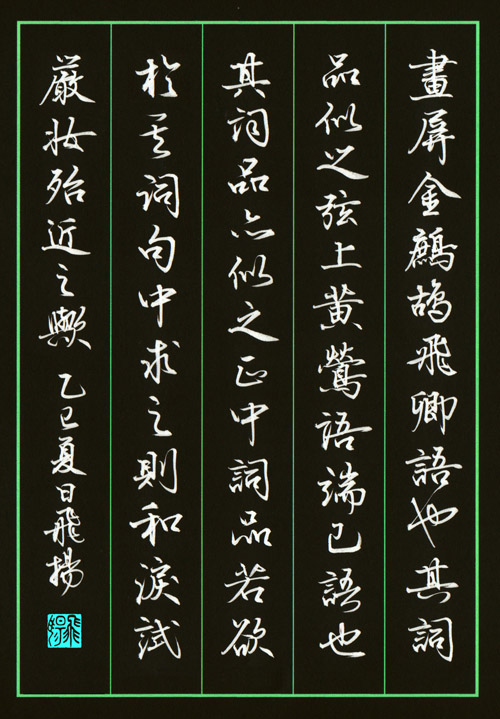 畫屏金鷓鴣飛卿語也其詞
品似之弦上黃鶯語端己語也
其詞品亦似之正中詞品若欲
於其詞句中求之則和淚試
嚴妝殆近之歟 乙巳夏日飛揚